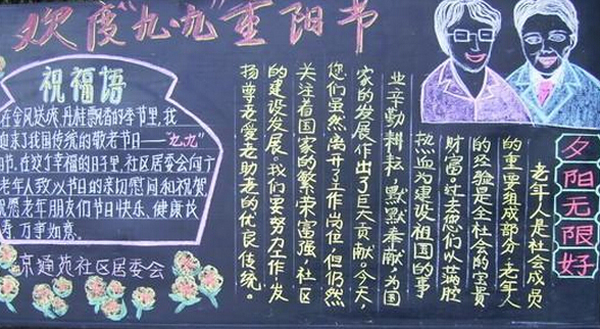 欢度"九·九"重阳节
祝福语
在金风送爽,丹桂飘香的季节里,我
迎来了我国传统的敬老节日——"九九"
节,在这个幸福的日子里,社区居委会向
老年人致以节日的亲切慰问和祝贺,
祝愿老年朋友们节日快乐、健康长
寿,万事如意。
京通苑社区居委会
夕阳无限好
老年人是社会成员
的重要组成部分,老年人
的经验是全社会的宝贵
财富。过去您们以满腔
热血为建设祖国的事
业辛勤耕耘,默默奉献,为国
家的发展作出了巨大贡献。今天,
您们虽然离开了工作岗位,但仍然
关注着国家的繁荣富强、社区
的建设发展。我们要努力工作,发
扬尊老爱老助老的优良传统。